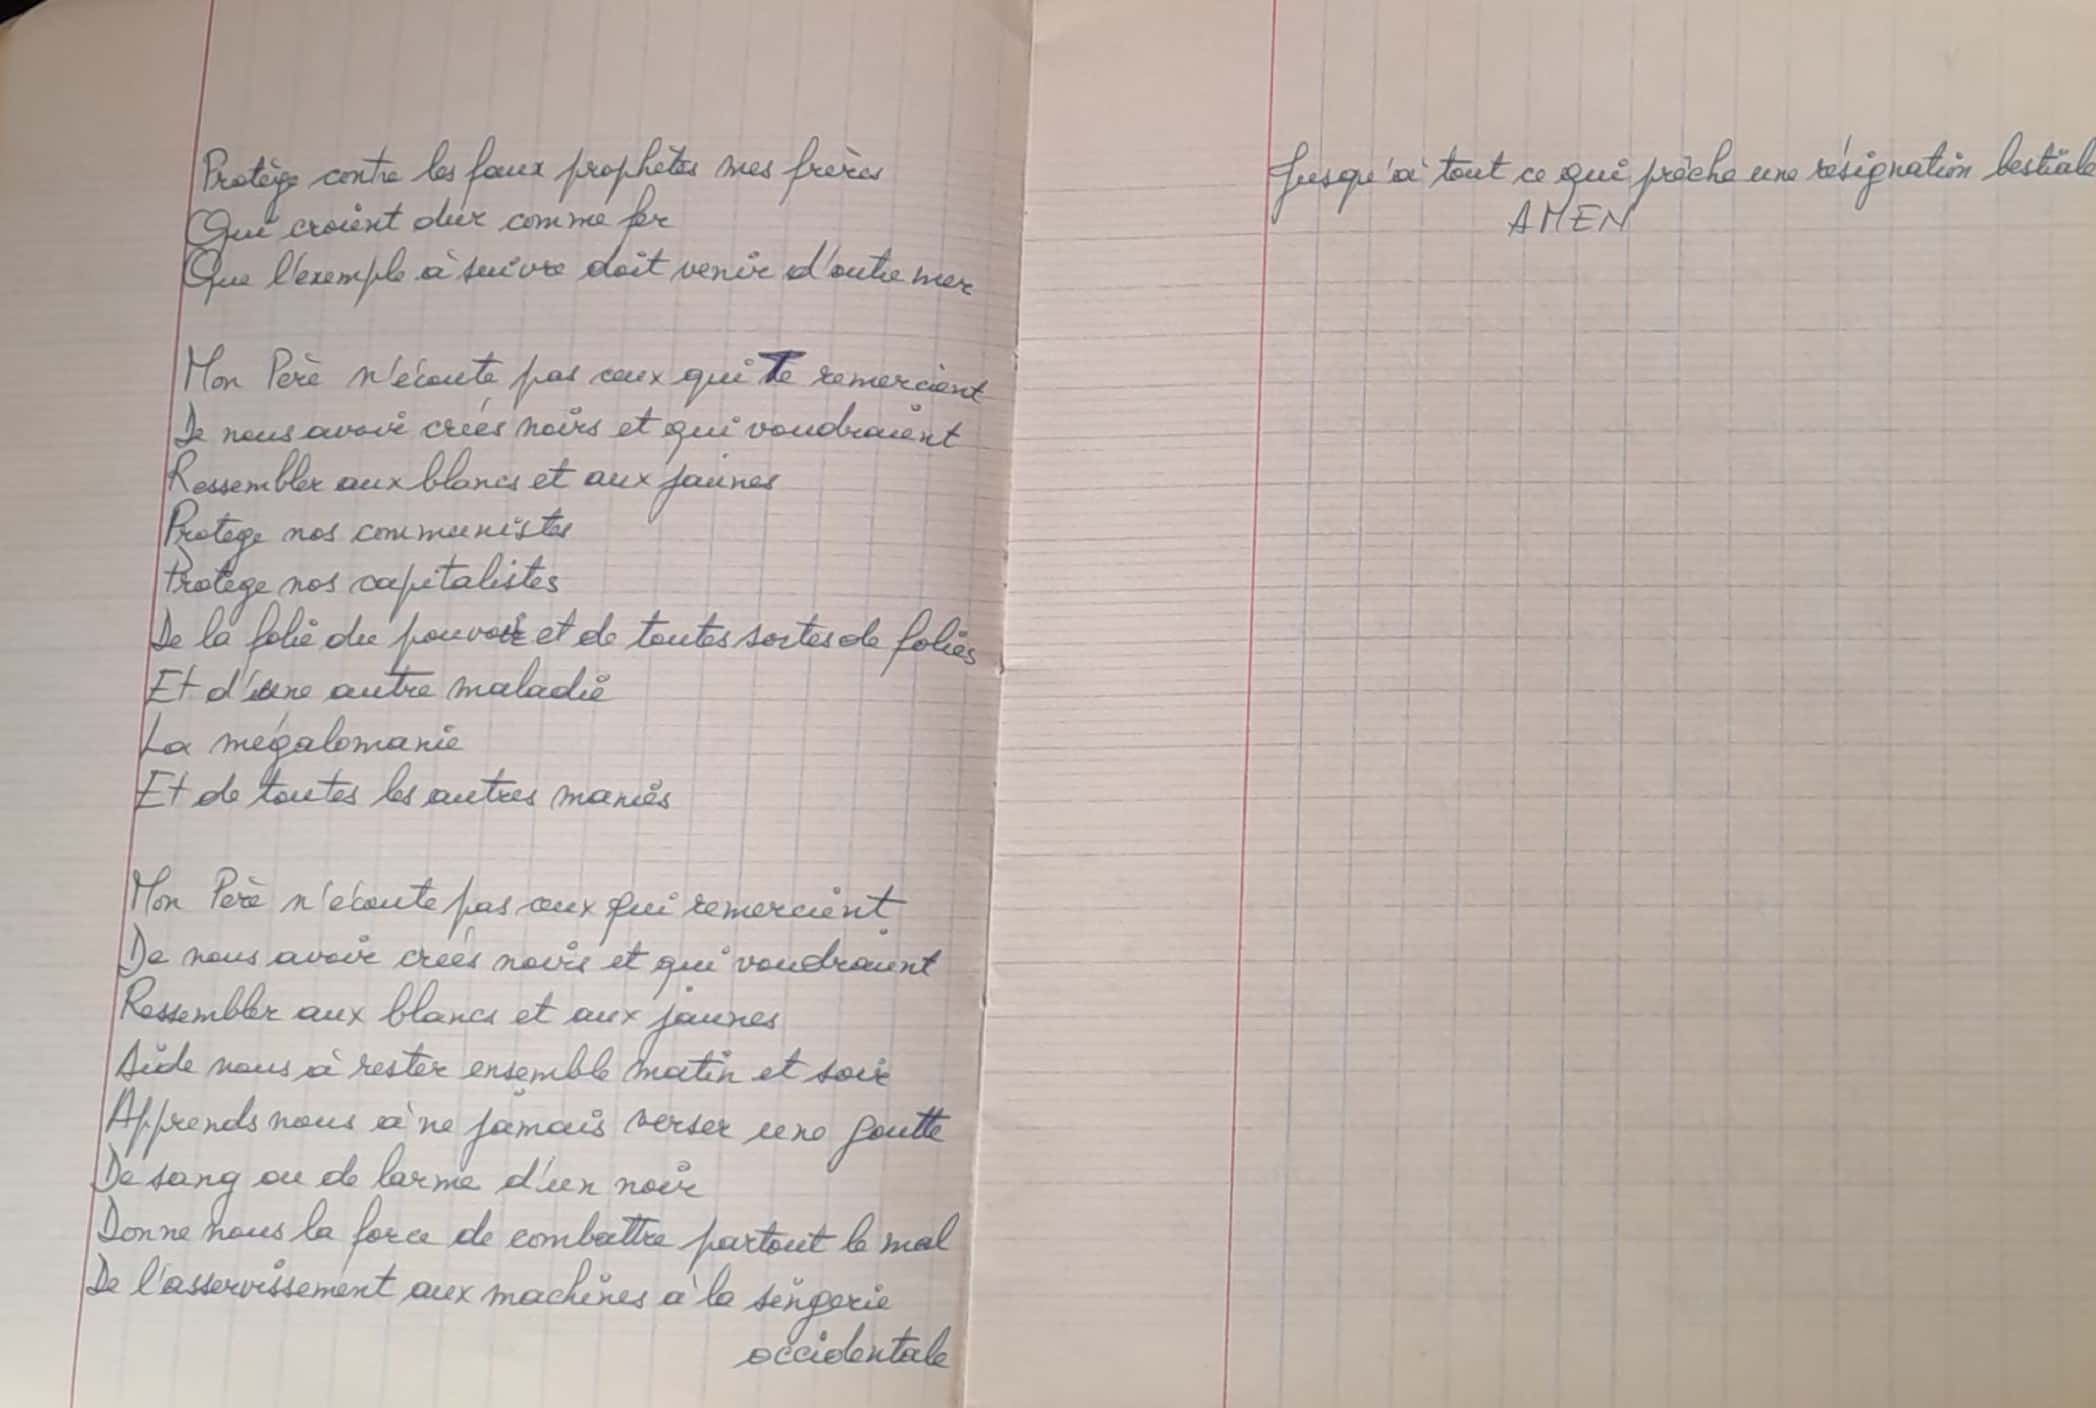 Protège contre les faux prophètes mes frères
Qui croient dur comme fer
Que l'exemple à suivre doit venir d'outre mer
Mon Père n'écoute pas ceux qui Te remercient
De nous avoir créés noirs et qui voudraient
Ressembler aux blancs et aux jaunes
Protège nos communistes
Protège nos capitalistes
De la folie du pouvoir et de toutes sortes de folies
Et d'une autre maladie
La mégalomanie
Et de toutes les autres manies
Mon Père n'écoute pas ceux qui remercient
De nous avoir créés noirs et qui voudraient
Ressembler aux blancs et aux jaunes
Aide nous à rester ensemble matin et soir
Apprends nous à ne jamais verser une goutte
De sang ou de larme d'un noir
Donne nous la force de combattre partout le mal
De l'asservissement aux machines à la singerie
occidentale
Jusqu'à tout ce qui prêche une résignation bestiale
AMEN